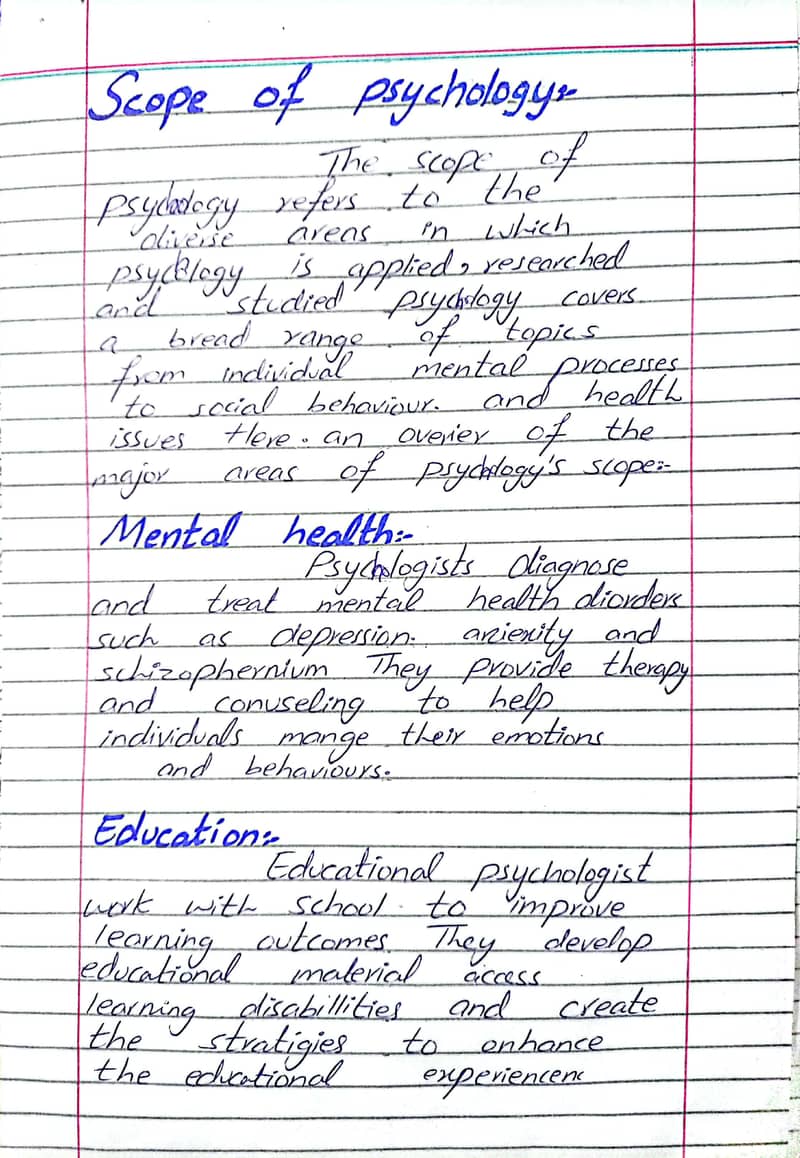 Scope of psychology:-
The scope of
psychology refers to the
diverse areas in which
psychology is applied, researched
and studied psychology covers
a bread range of topics
from individual mental processes
to social behaviour. and health
issues Here. an overier of the
major areas of psychology's scope:-
Mental health:-
Psychologists diagnose
and treat mental health diorders
such as depression. anziexity and
schizophernium They provide therapy
and conuseling to help
individuals mange their emotions
and behaviours.
Education:-
Educational psychologist
work with school. to improve
learning outcomes. They develop
educational material access
learning disabillities and create
the stratigies to enhance
the educational